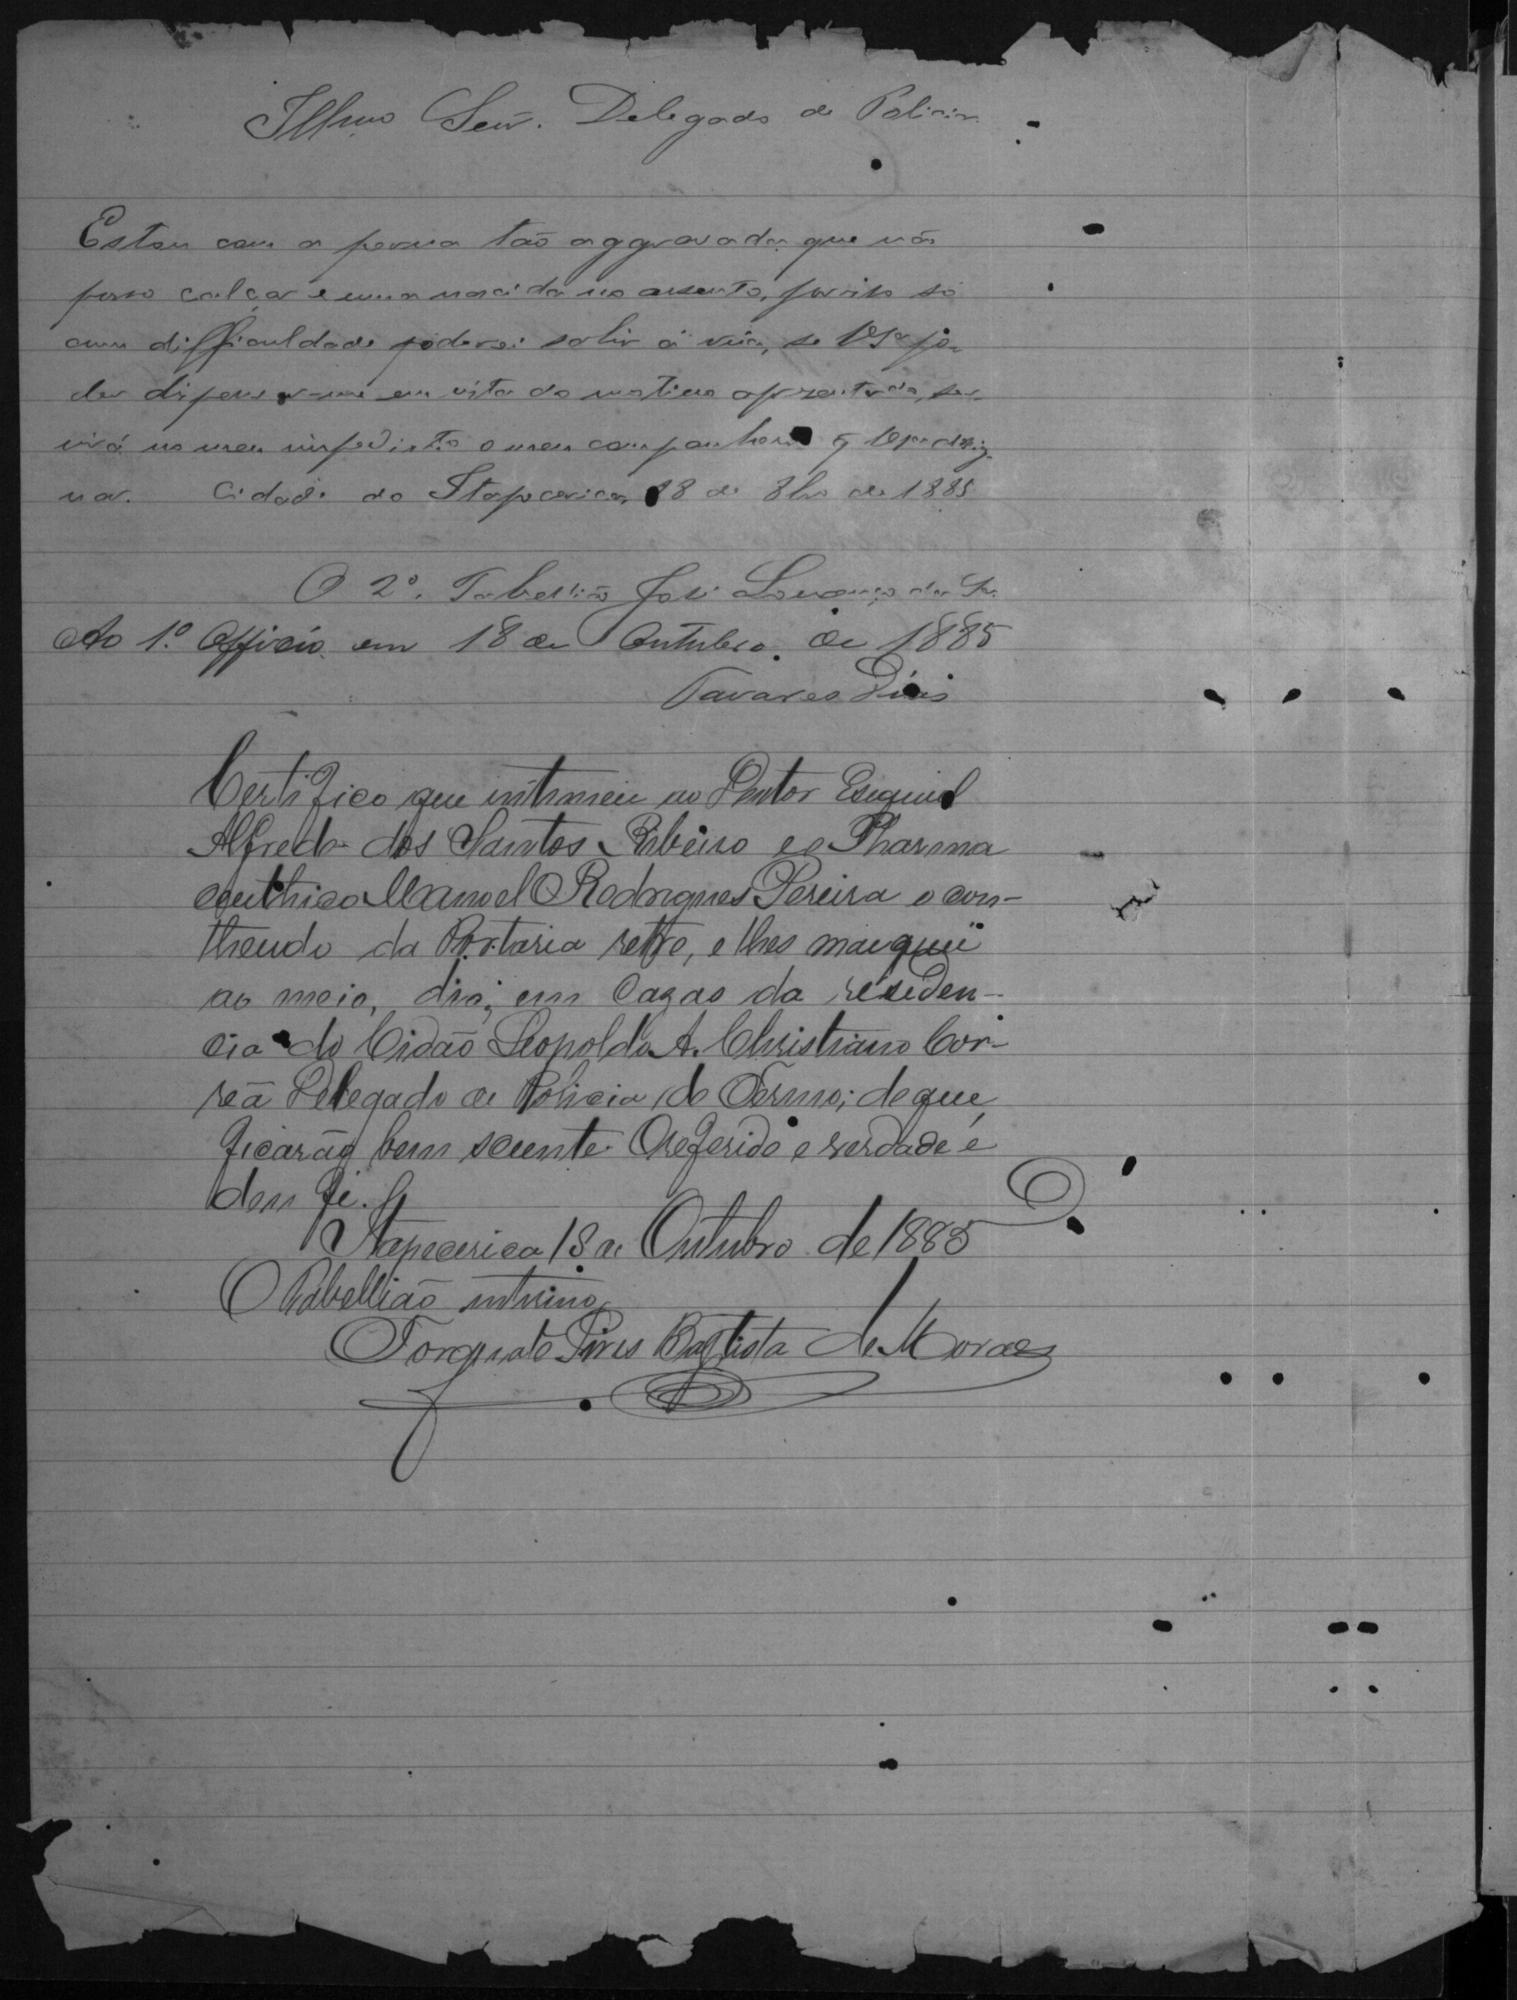 Illmo Senr. Delegado de Policia
Estou com a perna tão aggravada, que não
posso calçar e uma nascida no assento, por isso só
com difficuldade poderei sahir á rua, se VSa po-
der dispensar-me em vista do motivo aprezentado, ser-
virá no meu impedimto o meu companheiro q VSa dezig-
nar. Cidade do Itapecerica, 18 de 8bro de 1885
O 2º. Tabellião José Lourenço da Sa.
Ao 1º. Officio em 18 de Outubro. de 1885
Tavares Dinis
Certifico que intimei ao Doutor Esequiel
Alfredo dos Santos Ribeiro e o Pharma
ceuthico Manoel Rodrigues Pereira o con-
theudo da Portaria retro, e lhes marquei
ao meio, dia, em Cazas da residen-
cia do Cidão Leopoldo A. Christiano Cor-
rêa Delegado de Policia do Termo; de que,
ficarão bem sciente. O referido e verdade e
dou fé.
Itapecerica 18 de Outubro de 1885
O Tabellião interino,
Torquato Pires Baptista de Moraes